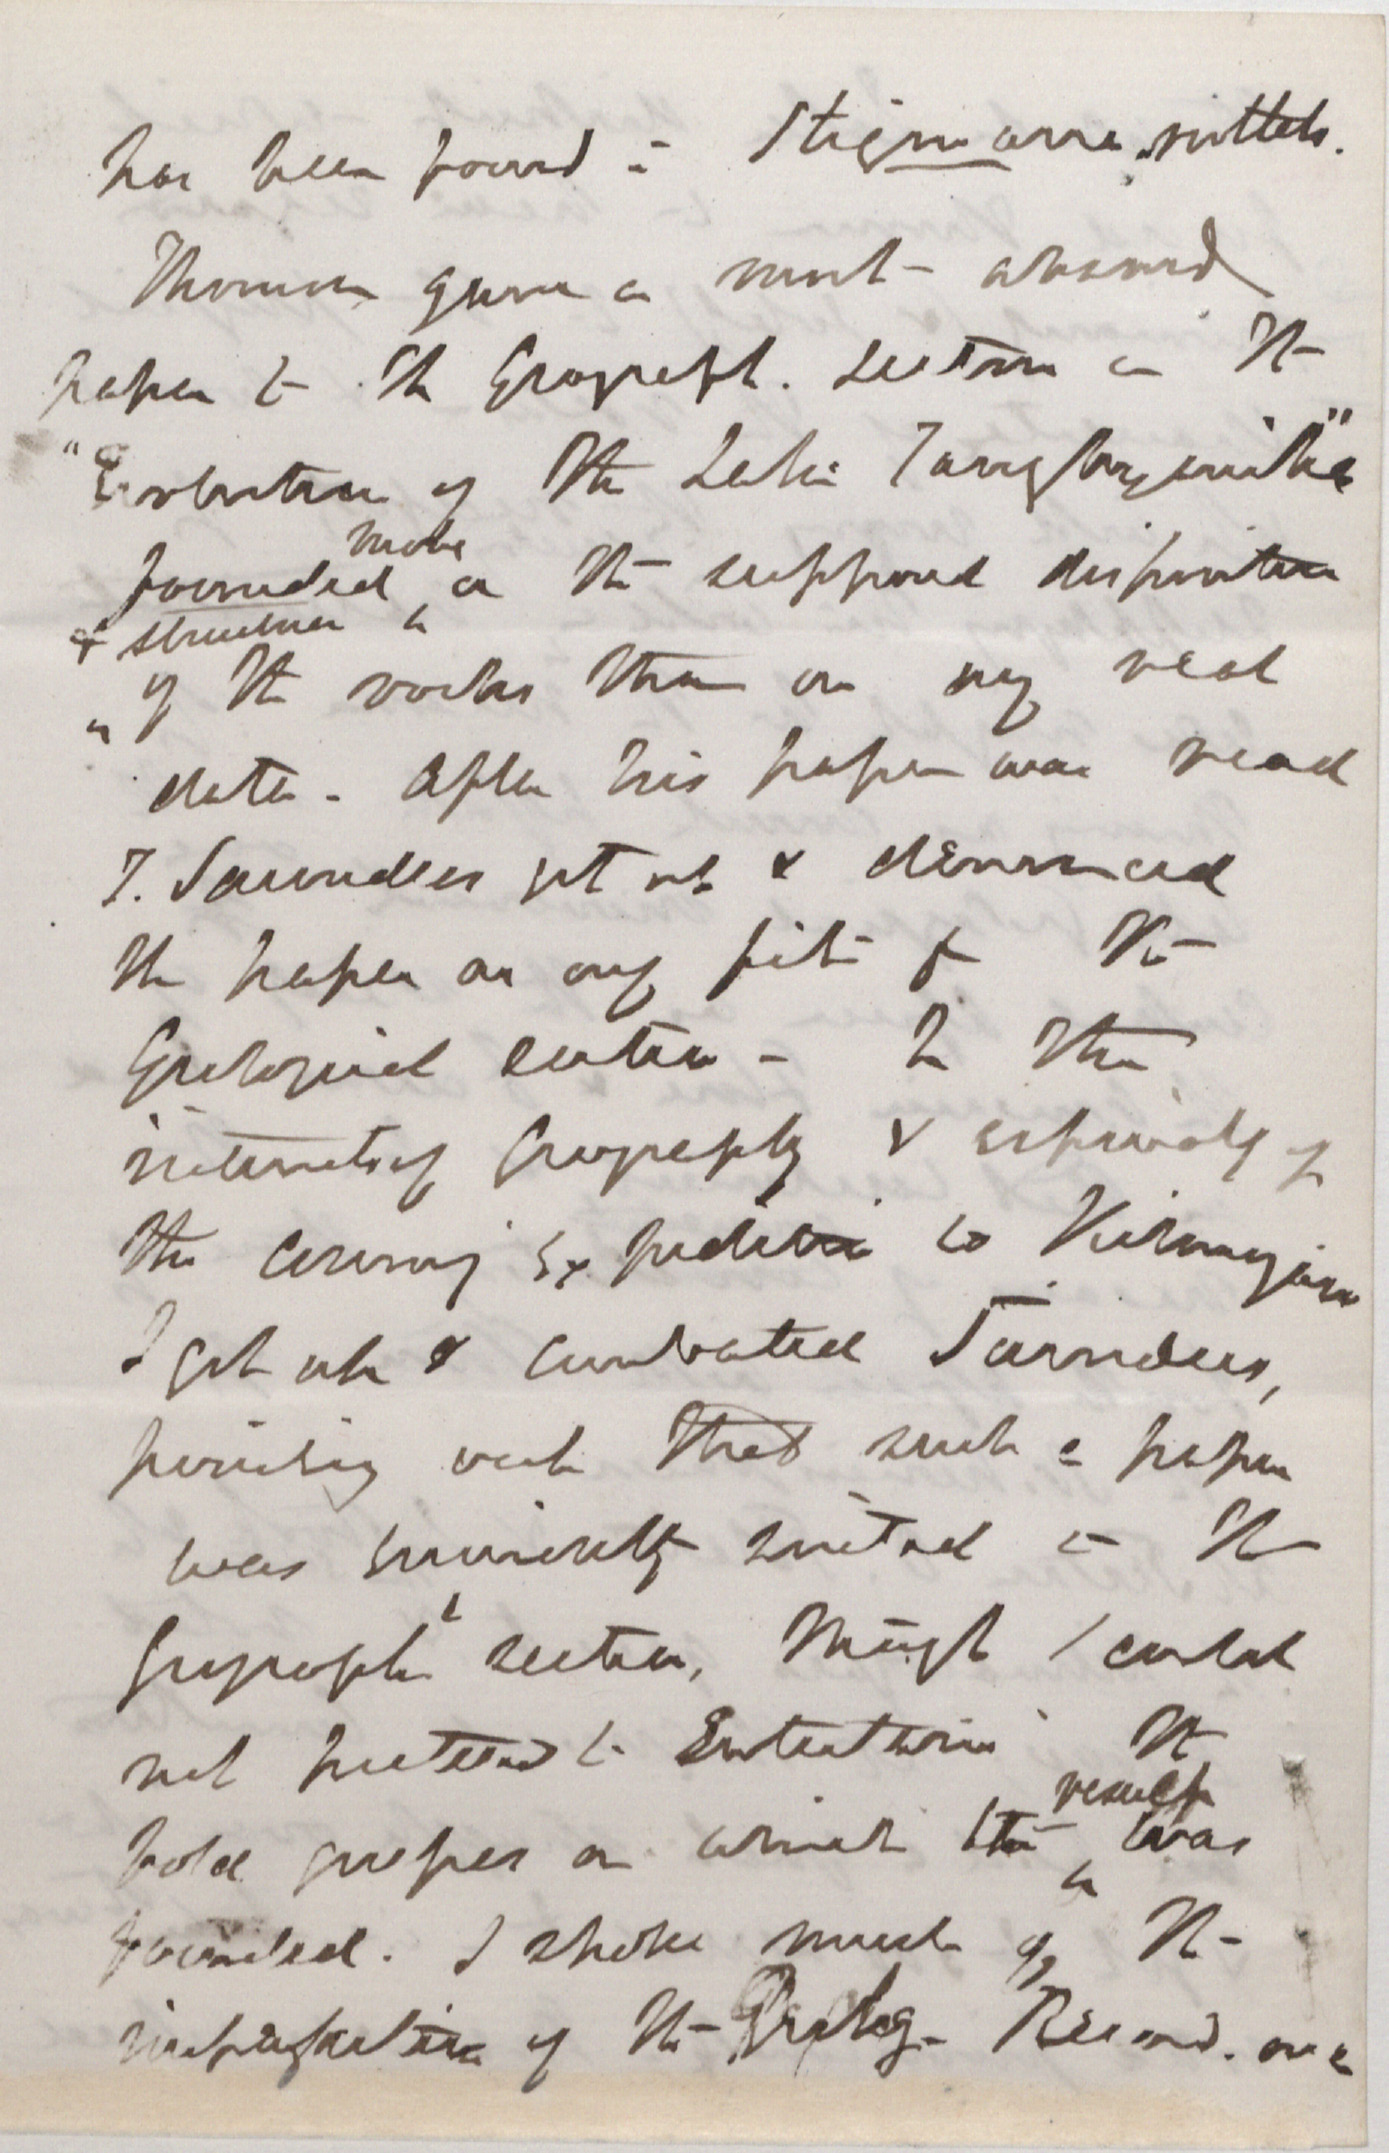 has been found in Stigmaria rootlets.
Thomson gave a most absurd
paper to the Geograph. section on the
"Evolution of the Lake Tanganyika"
founded more on the supposed disposition
& structure
of the rocks than on any real
data. After his paper was read
T. Saunders got up & denounced
the paper as only fit for the
Geological section - In the
interests of Geography & especially of
the coming Expedition to Kilimanjaro
I got up & combated Saunders,
pointing out that such a paper
was eminently suited to the
Geographl section, though I could
not pretend to entertain the
bold guesses on which the result was
founded. I spoke much of the
imperfection of the Geolog. Record. over